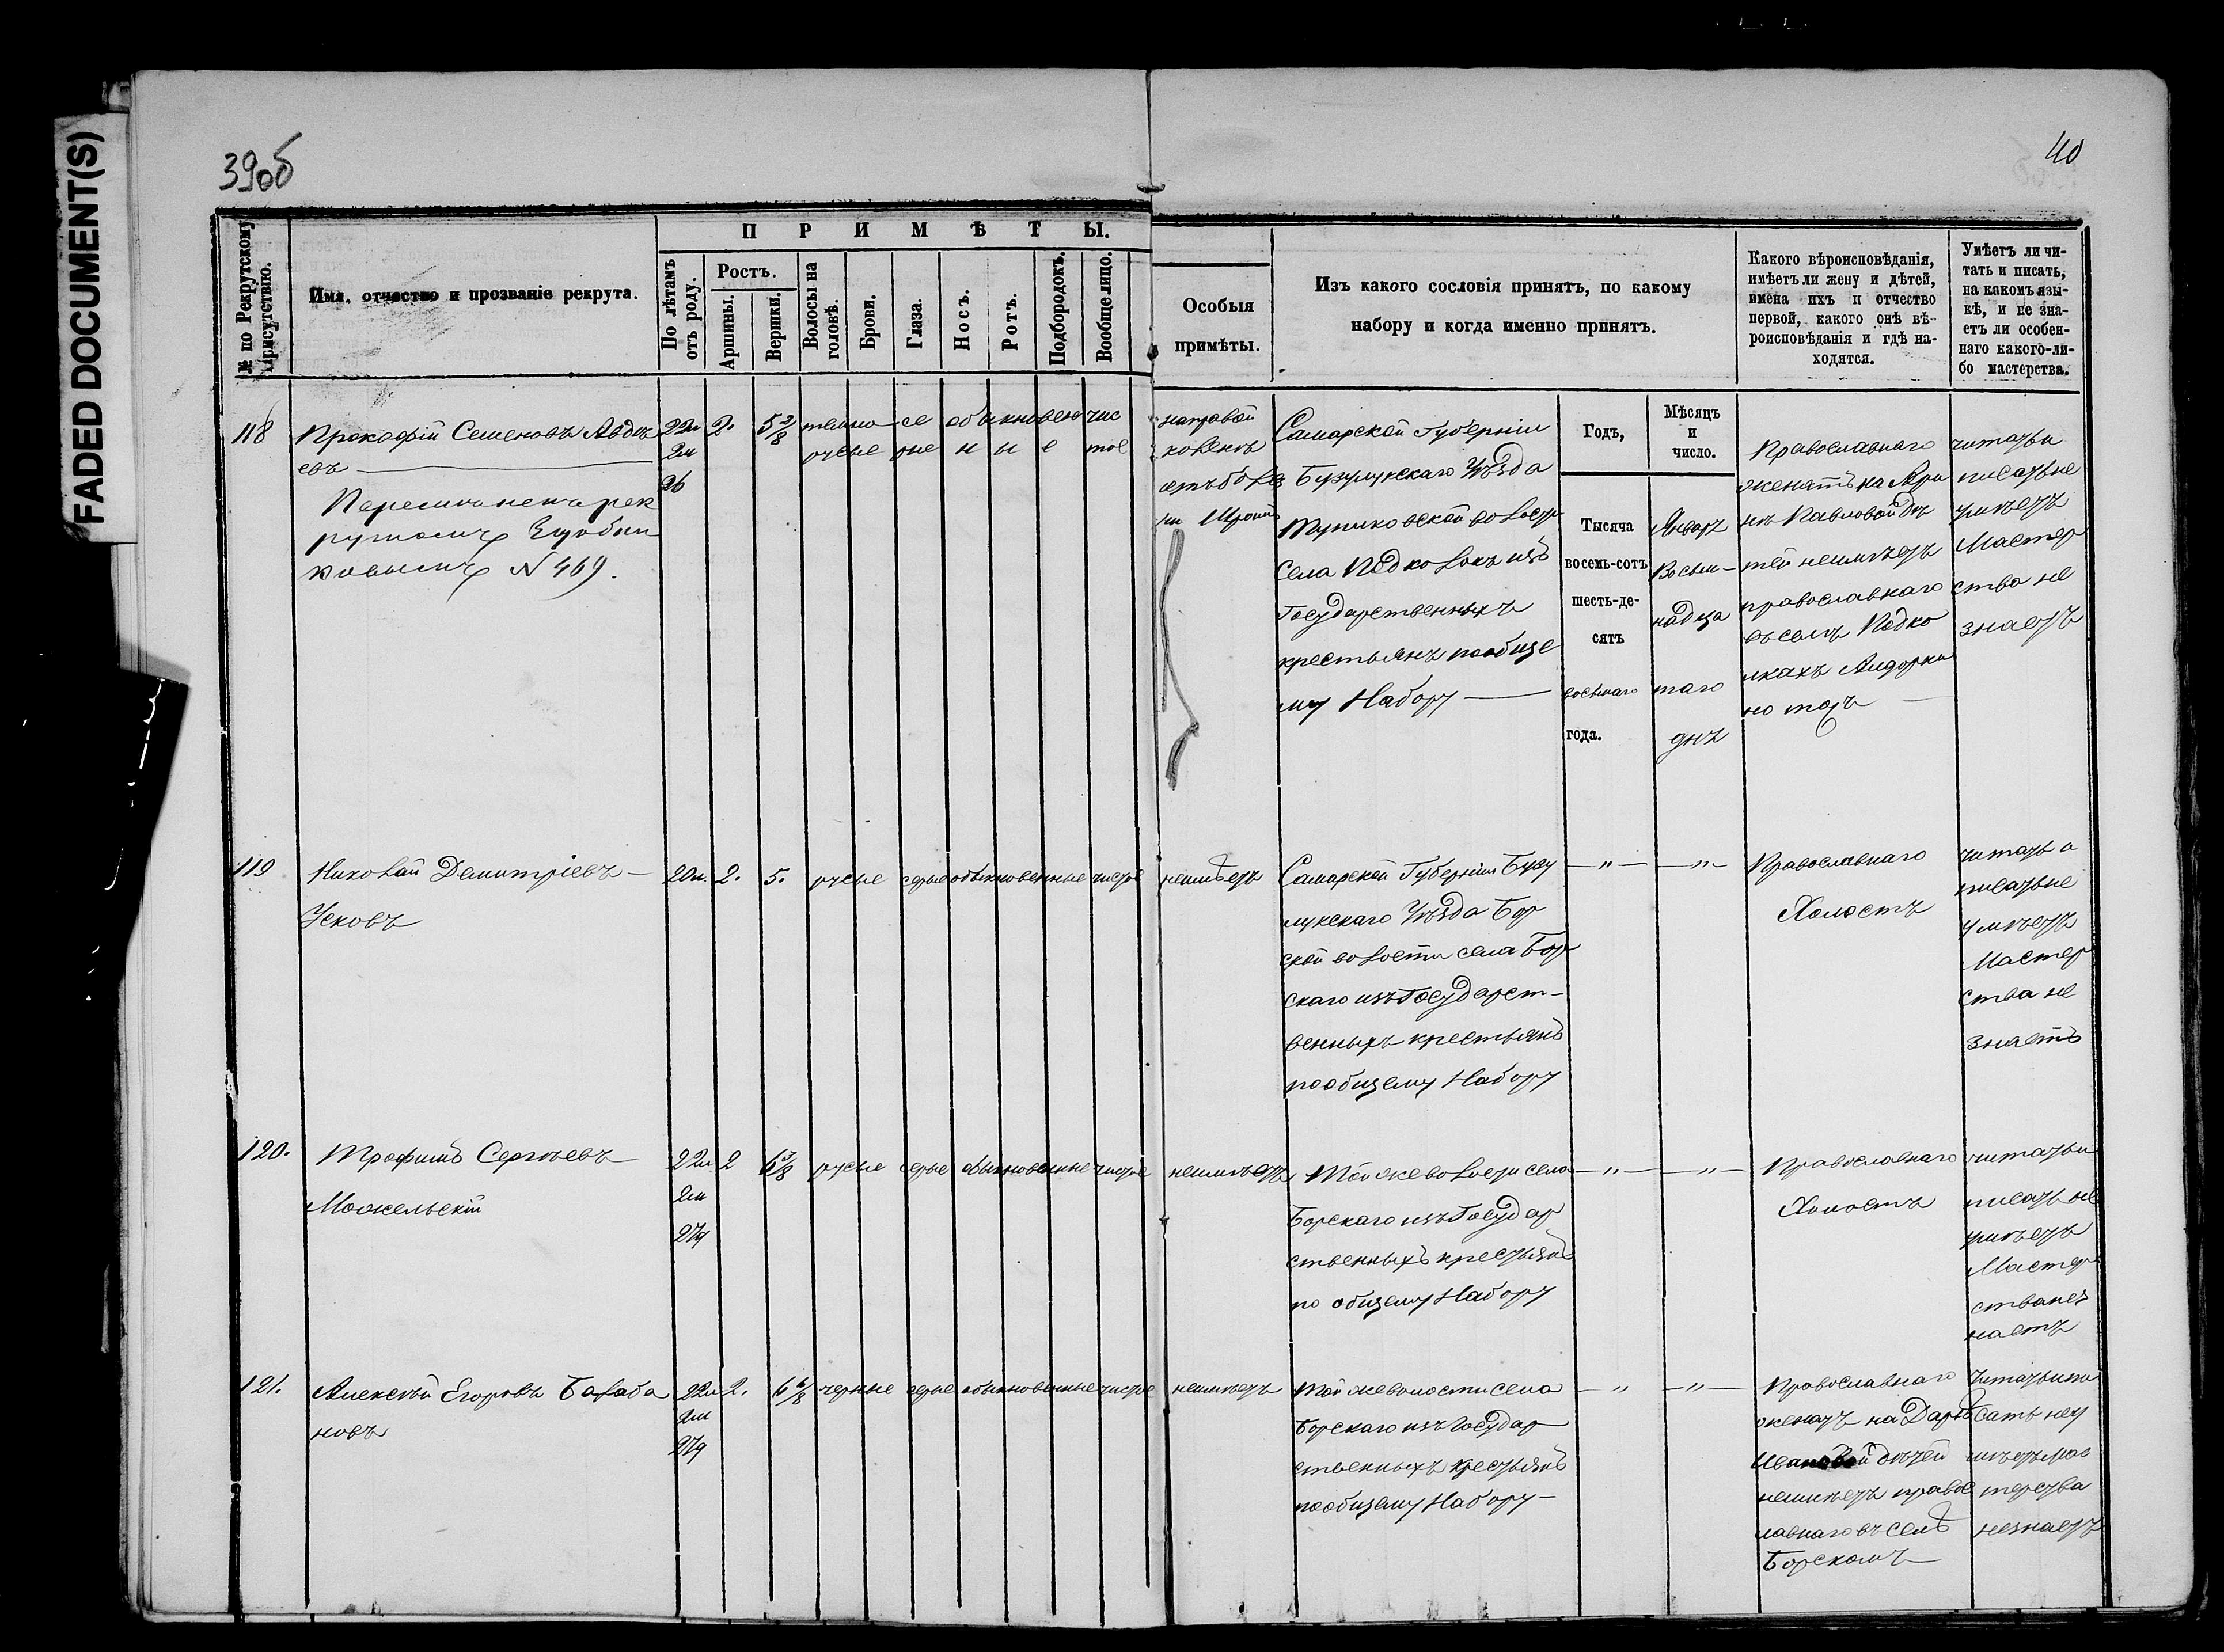 FADED DOCUMENT(S)
39об
40
№ по Рекрутскому присутствію.
Имя, отчество и прозваніе рекрута.
ПРИМѢТЫ.
По лѣтамъ отъ роду.
Ростъ.
Аршины.
Вершки.
Волосы на головѣ.
Брови.
Глаза.
Носъ.
Ротъ.
Подбородокъ.
Вообще лицо.
Особыя
примѣты.
Изъ какого сословія принятъ, по какому
набору и когда именно принятъ.
Какого вѣроисповѣданія,
имѣетъ ли жену и дѣтей,
имена ихъ и отчество
первой, какого онѣ вѣ-
роисповѣданія и гдѣ на-
ходятся.
Умѣетъ ли чи-
тать и писать,
на какомъ язы-
кѣ, и не зна-
етъ ли особен-
наго какого-ли-
бо мастерства.
118
Прокофій Семеновъ Авдѣ
евъ
рек
рутомъ
№ 469.
22л
2м
2
5 3/8
темно
русые
се
рые
обыкновен
н ы е
чис
тое
на правой
Самарской Губерніи
Бузулукскаго Уѣзда
волости
Села Подколокъ изъ
Государственныхъ
крестьянъ по обще
му Набору
Годъ,
Мѣсяцъ
и
число.
Тысяча
восемь-сотъ
шесть-де-
сятъ
восьмаго
года.
Январь
Восем-
надца
таго
дня
Православнаго
женатъ на Ари
нѣ Павловой дѣ
тей неимѣетъ
православнаго
въ селѣ Подко
лкахъ
читать и
писать не
умѣетъ
Мастер
ства не
знаетъ
119
Николай Демитріевъ
Усковъ
20л.
2.
5.
русые
серые
обыкновенные
чистое
неимѣетъ
Самарской Губерніи Бузу
лукскаго Уѣзда Бор
ской волости села Бор
скаго изъ Государст-
венныхъ крестьянъ
по общему Набору
— " —
— " —
Православнаго
Холостъ
читать и
писать не
умѣетъ
Мастер
ства не
знаетъ
120.
Трофимъ Сергѣевъ
Можельскій
22л
2м
27д
2
6 3/8
русые
серые
обыкновенные
чистое
неимѣетъ
Той же волости села
Борскаго изъ Государ
ственныхъ крестьянъ
по общему Набору
— " —
— " —
Православнаго
Холостъ
читать и
писать не
умѣетъ
Мастер
ства нез
наетъ
121.
Алексѣй Егоровъ Балаба
новъ
22л
2м
27д
2.
6 6/8
черные
серые
обыкновенные
чистое
неимѣетъ
Той же волости села
Борскаго изъ Государ
ственныхъ крестьянъ
по общему Набору
— " —
— " —
Православнаго
женатъ на Дарьѣ
Ивановой дѣтей
неимѣетъ правос
лавнаго въ селѣ
Борскомъ
Читать и пи
сать неу
мѣетъ мас
терства
незнаетъ